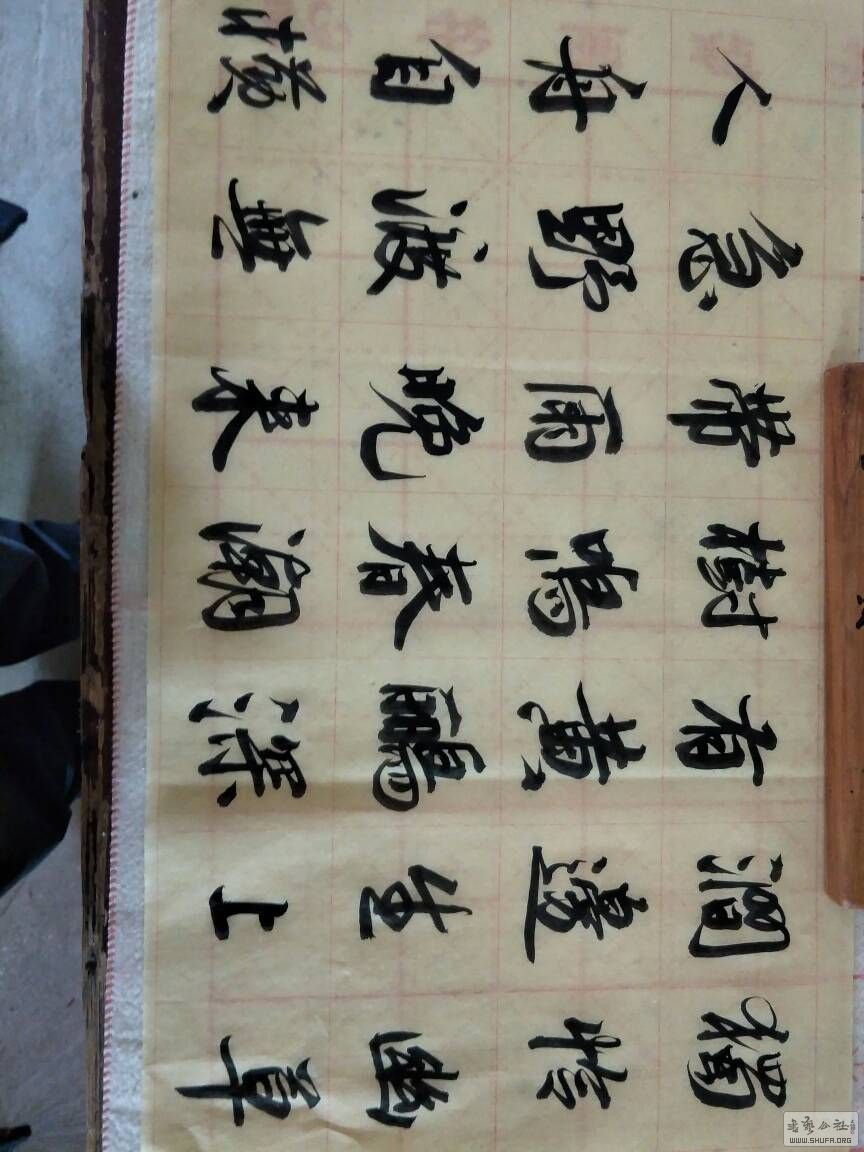 獨憐幽草
澗邊生上
有黄鸝深
樹鳴春潮
帶雨晚來
急野渡無
人舟自横
書藝公社
WWW.SHUFA.ORG